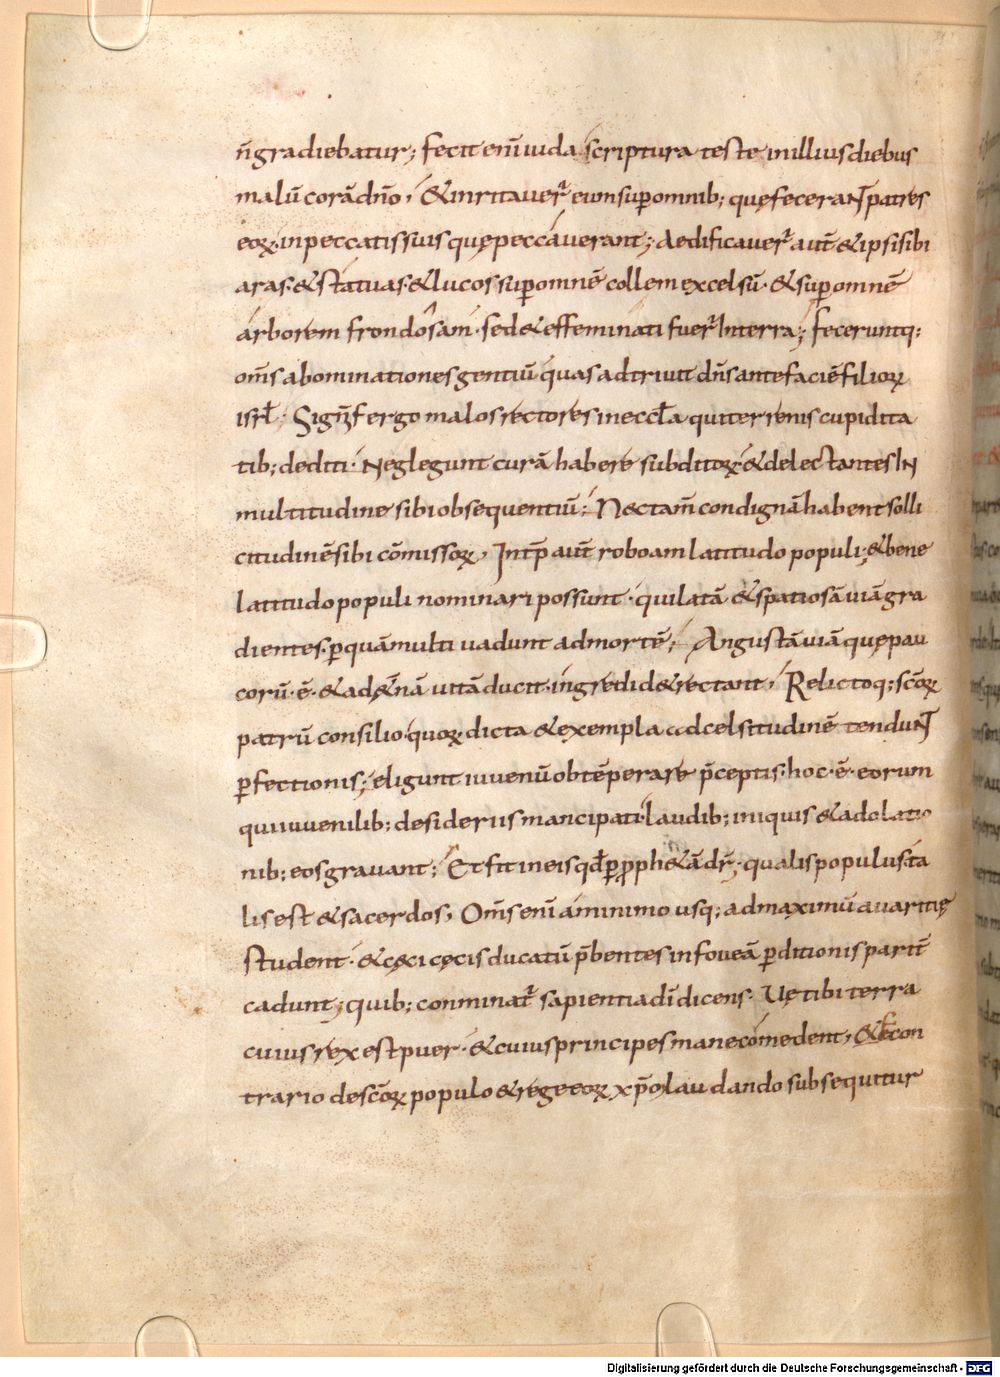 n̄gradiebatur; fecit enī iuda scriptura teste in illius diebus
malū corā dn̄o, & inritauer̄ eum sup̄ omnib; quę feceraNT patres
eoꝝ in peccatis suis quę peccauerant; Aedificauer̄ aut̄ & ipsi sibi
aras· & statuas· & lucos sup̄ omnē collem excelsū· & sup̄ omnē
arborem frondosam· sed & effeminati fuer̄ In terra; feceruntq;
om̄s abominationes gentiū quas adtriuit dn̄s ante faciē filioꝝ
isrł; Signf̄ ergo malos rectores in eccła qui terrenis cupidita
tib; dediti· Neglegunt curā habere subditoꝝ· & delectantes IN
multitudine sibi obsequentiū; Nec tam̄ condignā habent solli
citudinē sibi cōmissoꝝ, Intp̄ aut̄ roboam latitudo populi, & bene
latitudo populi nominari possunt· qui latā & spatiosā uiā gra
dientes· ꝑ quā multi uadunt ad mortē; Angustā uiā quę pau
corū· ē· & ad &̨nā uitā ducit· ingredi d&rectant, Relictoq; sc̄oꝝ
patrū consilio· quoꝝ dicta & exempla ad celsitudinē tenduNT
ꝑfectionis; eligunt iuuenū obtēperare p̄ceptis· hoc· ē· eorum
qui iuuenilib; desideriis mancipati· laudib; iniquis & adolatio
nib; eos grauant; Et fit in eis qđ ꝑ proph&ā dr̄; qualis populus· ta
lis est & sacerdos, Om̄s enī a minimo usq; ad maximū auaritię
student· & cęci cęcis ducatū p̄bentes in foueā ꝑditionis parit̄
cadunt; quib; conminat̄ sapientia dī dicens· Uę tibi terra
cuius rex est puer· & cuius principes mane comedent, & econ
trario de sc̄oꝝ populo & rege eoꝝ xp̄o laudando subsequitur
Digitalisierung gefördert durch die Deutsche Forschungsgemeinschaft - DFG